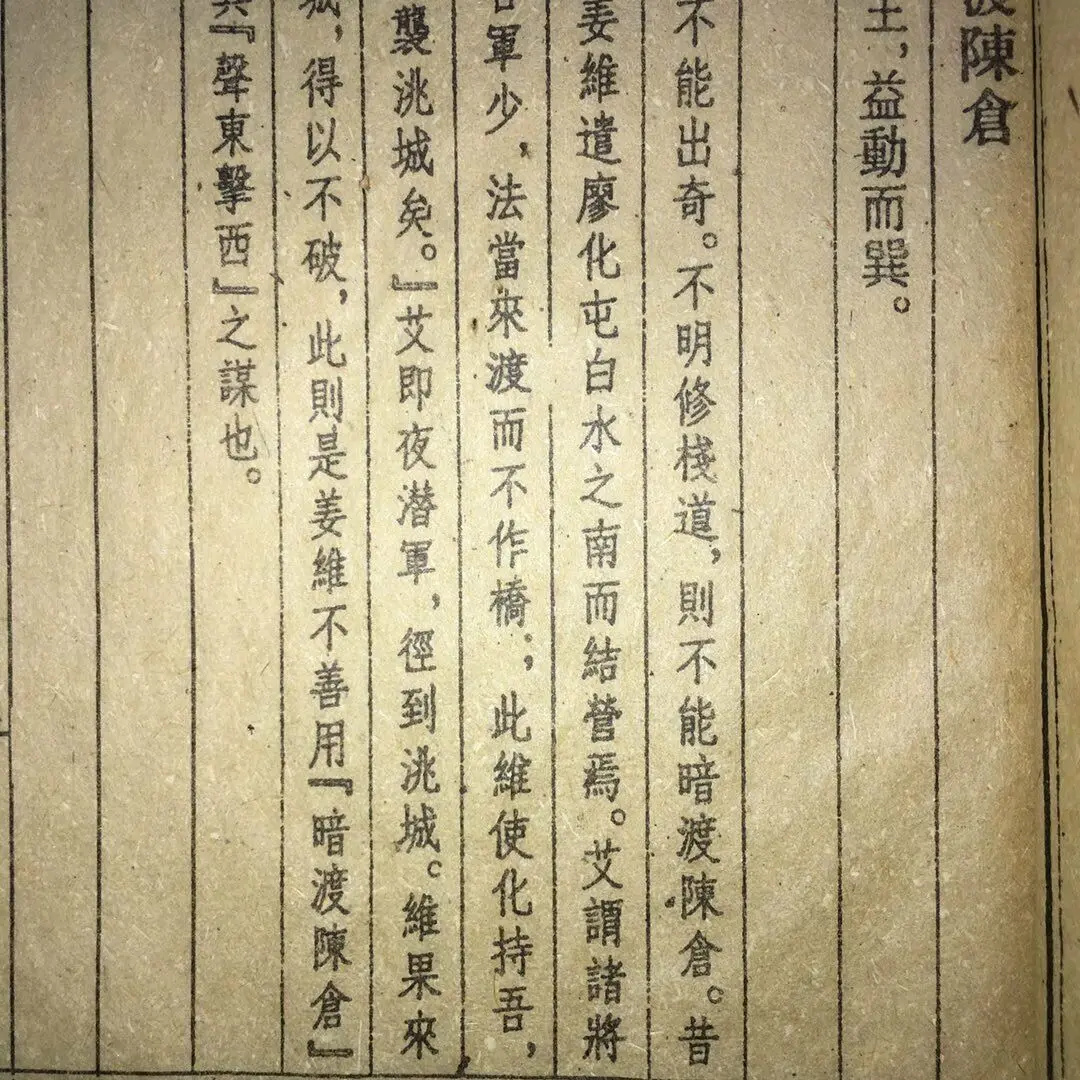 陳倉
益動而巽。
不能出奇。不明修棧道,則不能暗渡陳倉。昔
姜維遣廖化屯白水之南而結營焉。艾謂諸將
軍少,法當來渡而不作橋;此維使化持吾,
襲洮城矣。』艾即夜潜軍,徑到洮城。維果來
得以不破,此則是姜維不善用『暗渡陳倉』
『聲東擊西』之謀也。